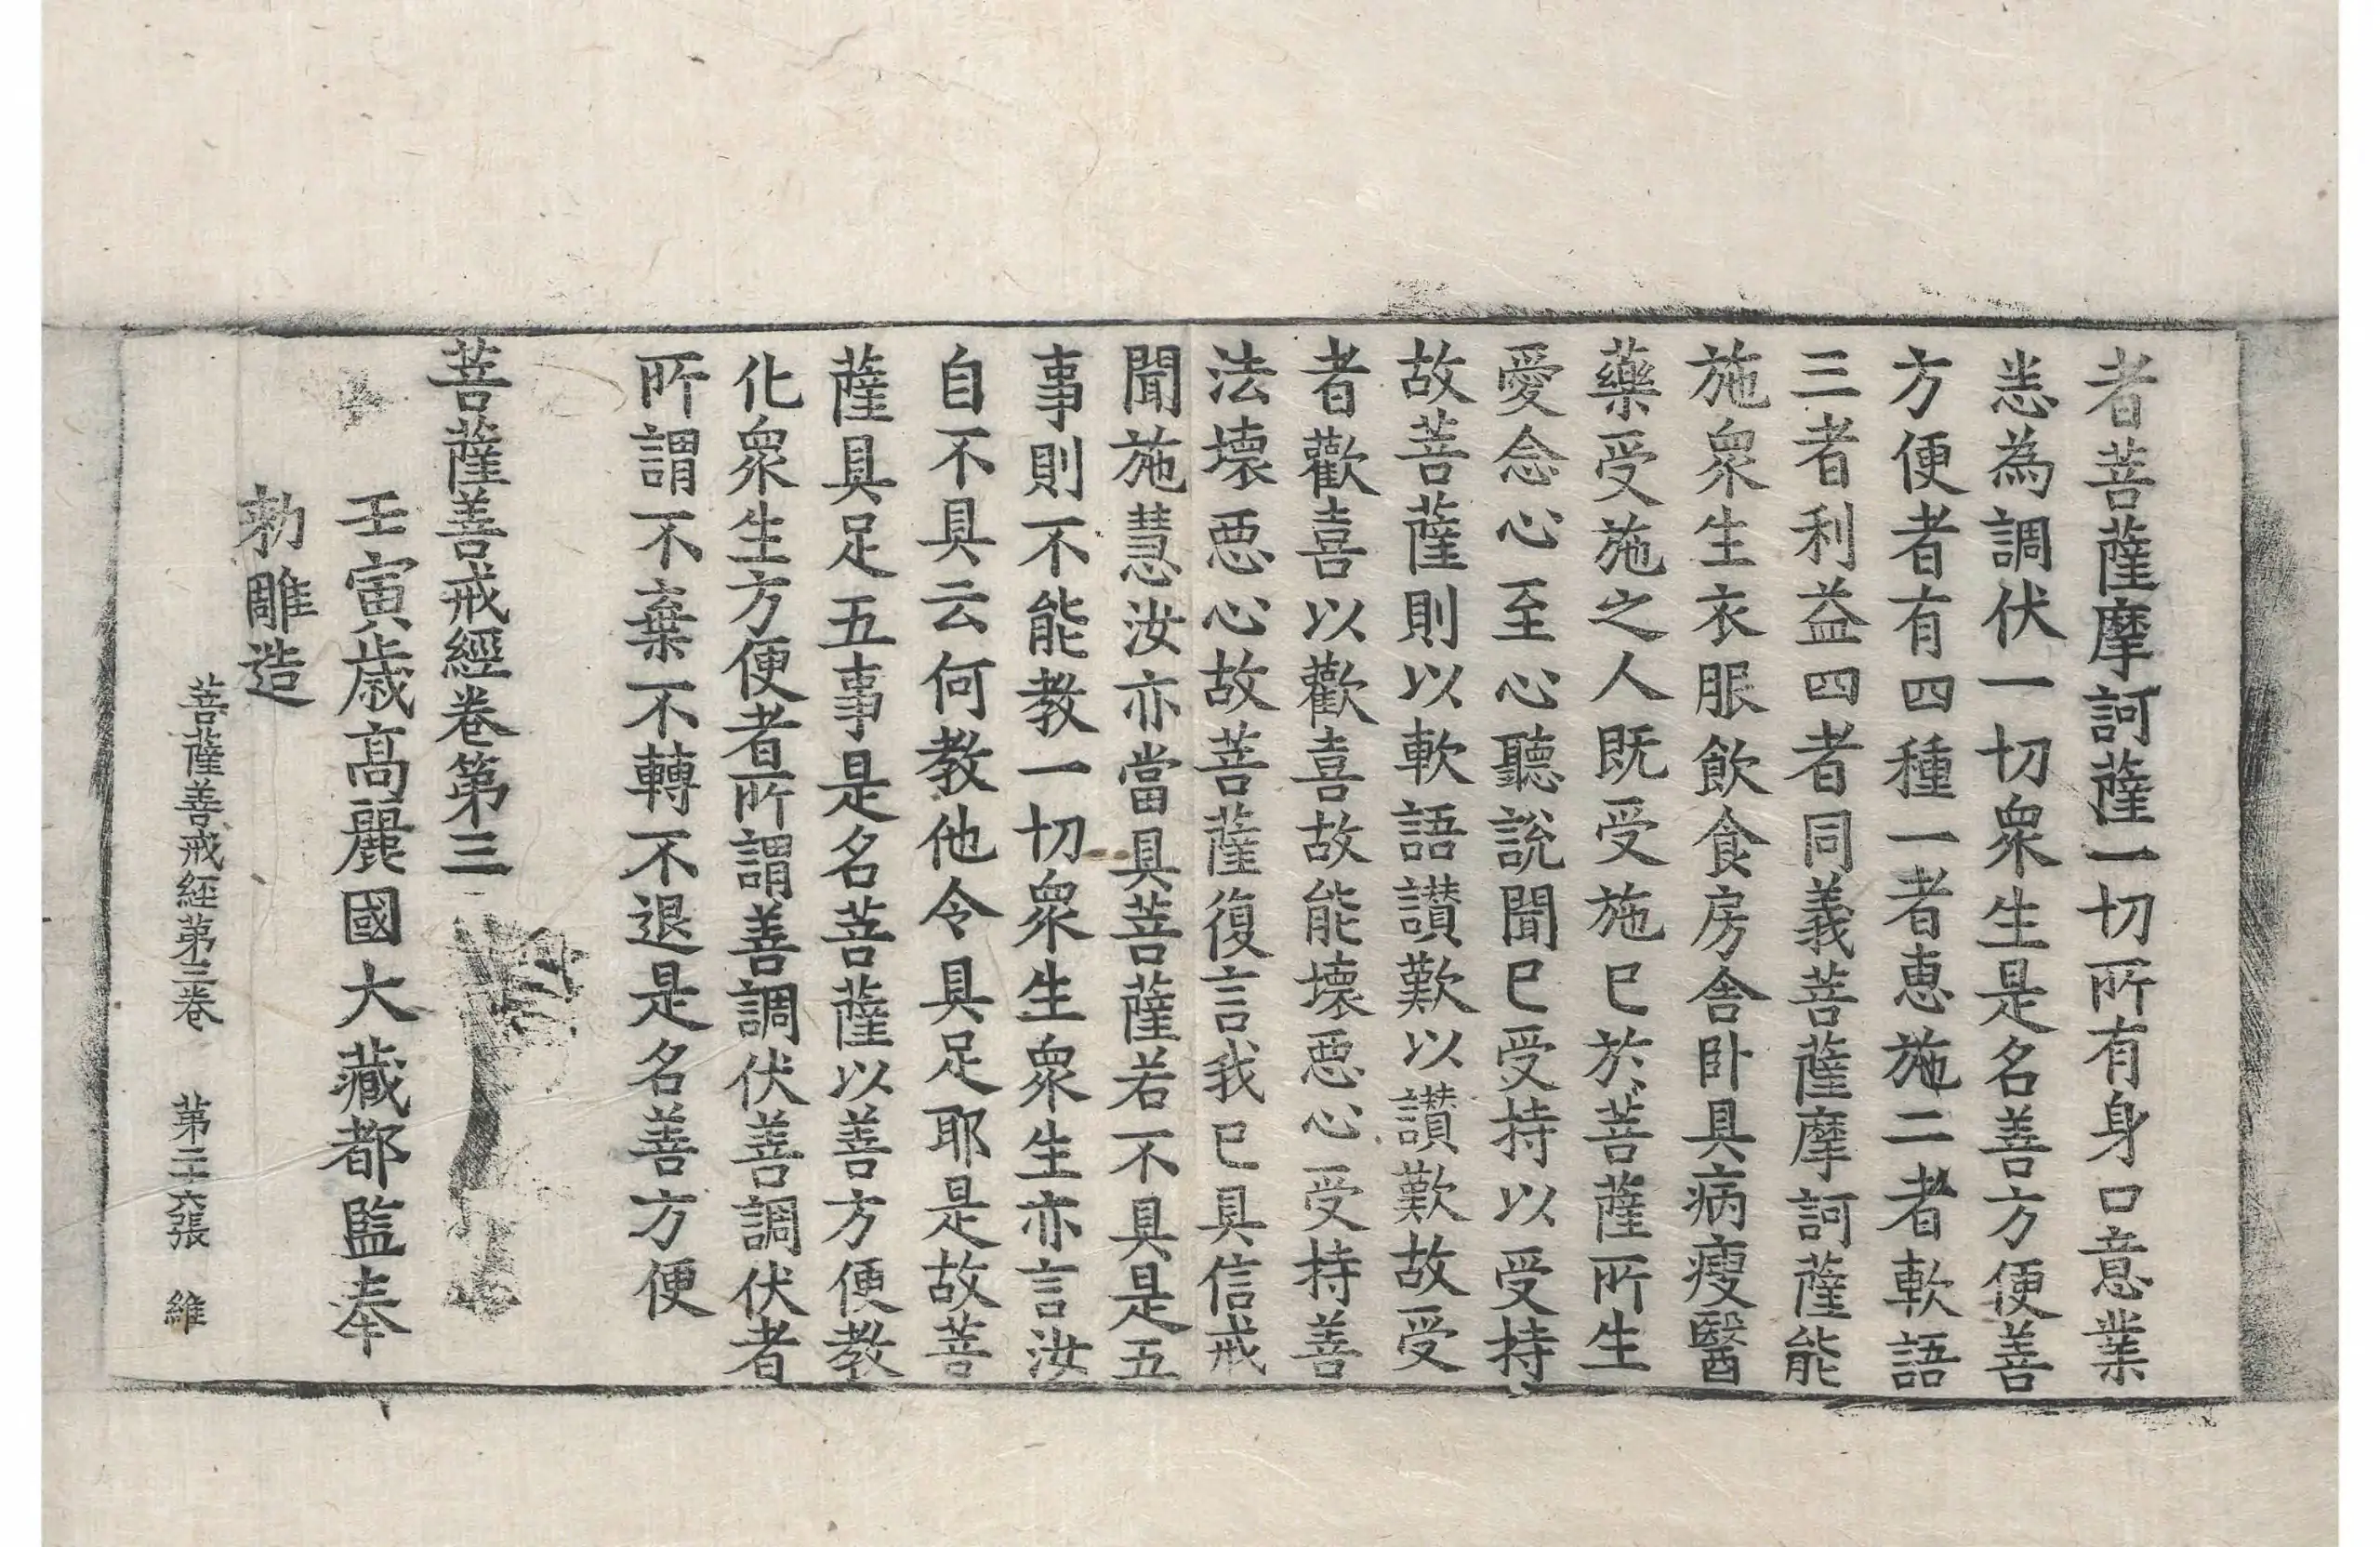 者菩薩摩訶薩一切所有身口意業
恙為調伏一切衆生是名善方便善
方便者有四種一者惠施二者軟語
三者利益四者同義菩薩摩訶薩能
施衆生衣服飲食房舍卧具病瘦醫
藥受施之人既受施已於菩薩所生
愛念心至心聽說聞已受持以受持
故菩薩則以軟語讃歎以讃歎故受
者歡喜以歡喜故能壞惡心受持善
法壞惡心故菩薩復言我已具信戒
聞施慧汝亦當具菩薩若不具是五
事則不能教一切衆生衆生亦言汝
自不具云何教他令具足耶是故菩
薩具足五事是名菩薩以善方便教
化衆生方便者所謂善調伏善調伏者
所謂不棄不轉不退是名善方便
菩薩善戒經卷第三
壬寅歲高麗國大藏都監奉
勑雕造
菩薩善戒經第三卷 第二十六張 維